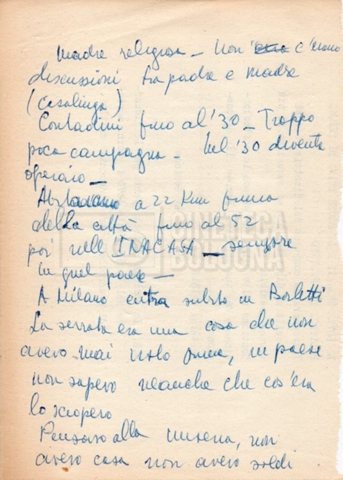 madre religiosa – Non c'erano
discussioni tra padre e madre
(casalinga)
Contadini fino al '30 – Troppo
poca campagna – Nel '30 diventa
operaio –
Abitavano a 22 Km fuori
della città fino al 52
poi nell'INACASA – sempre
in quel paese –
A Milano entra subito in Borletti
La serrata era una cosa che non
avevo mai visto prima, in paese
non sapevo neanche che cos'era
lo sciopero
Pensavo alla miseria, non
avevo casa non avevo soldi
CINETECA
BOLOGNA